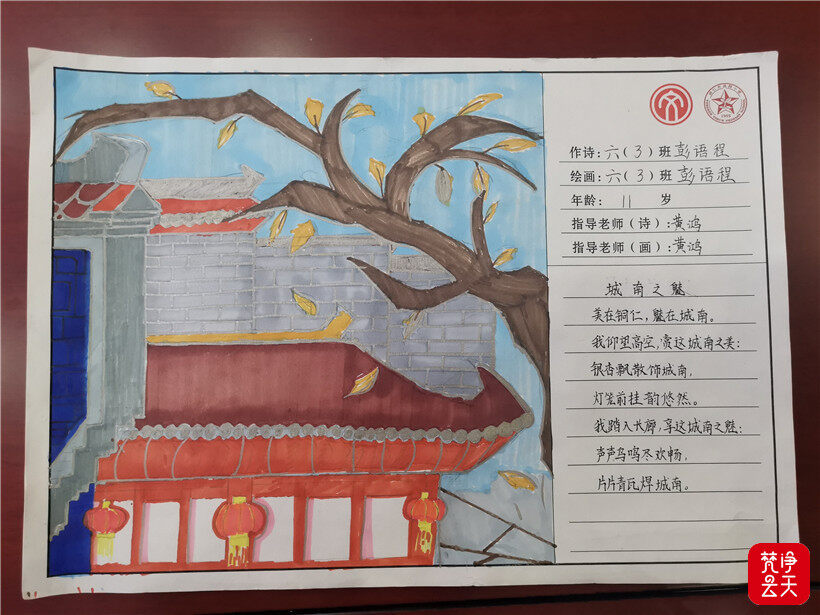 作诗：六（3）班彭语程
绘画：六（3）班彭语程
年龄： 11 岁
指导老师（诗）：黄鸿
指导老师（画）：黄鸿
城南之魅
美在铜仁，魅在城南。
我仰望高空，赏这城南之美：
银杏飘散饰城南，
灯笼前挂韵悠然。
我踏入长廊，享这城南之魅：
声声鸟鸣尽欢畅，
片片青瓦焊城南。
梵净云天